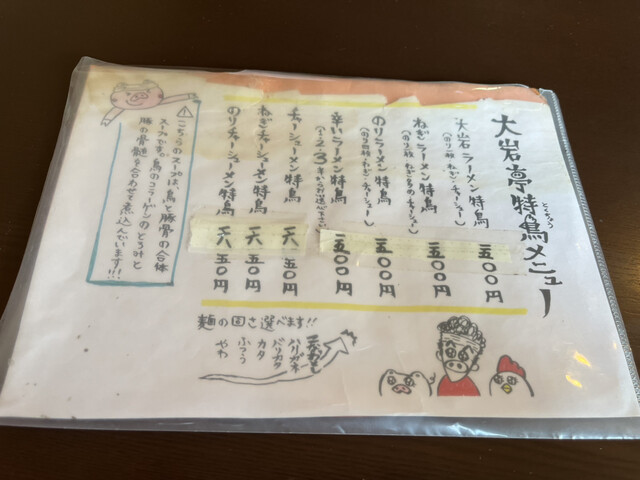 大岩亭特鳥メニュー
とくちょう
大岩石ラーメン特鳥
(のり二枚・ねぎ・チャーシュー)
五〇〇円
ねぎラーメン特鳥
(のり二枚・ねぎ多め・チャーシュー)
五〇〇円
のりラーメン特鳥
ねぎ・チャーシュー)
五〇〇円
辛いラーメン特鳥
(1・2・3辛からお選び下さい)
五〇〇円
チャーシューメン特鳥
五〇円
ねぎチャーシューメン特鳥
五〇円
のりチャーシューメン特鳥
五〇円
こちらのスープは、鳥と豚骨の合体
スープです。鳥のコラーゲンのとろ味と
豚の骨髄を合わせて煮込んでいます!!!
麺の固さ選べます!!
ハリガネ
バリカタ
カタ
ふつう
やわ